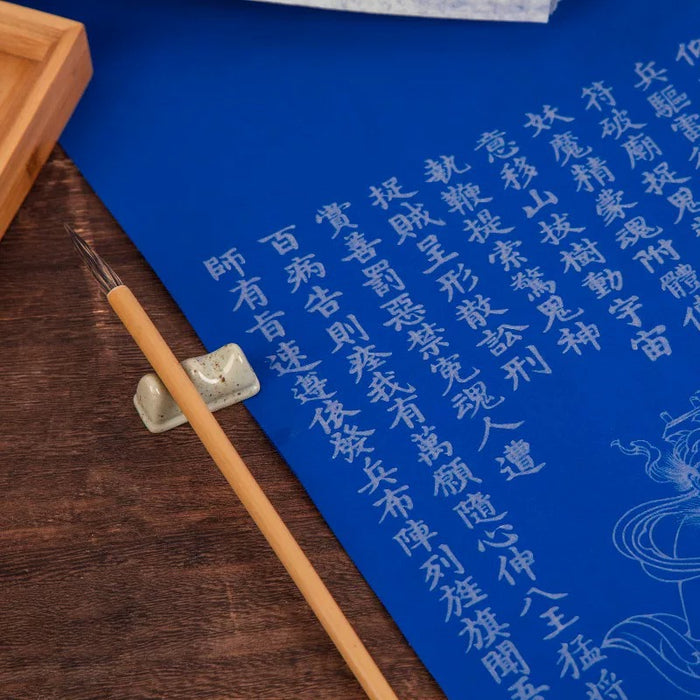 兵驅
符破廟捉鬼
妖魔精蒙魂附體
意移山拔樹動宇宙
執鞭提索驚鬼神
捉賊呈形散訟刑
賞善罰惡禁冤魂人遭
百病告則痊我有萬願隨心伸八王猛将
師有旨速遵依發兵布陣列旌旗聞